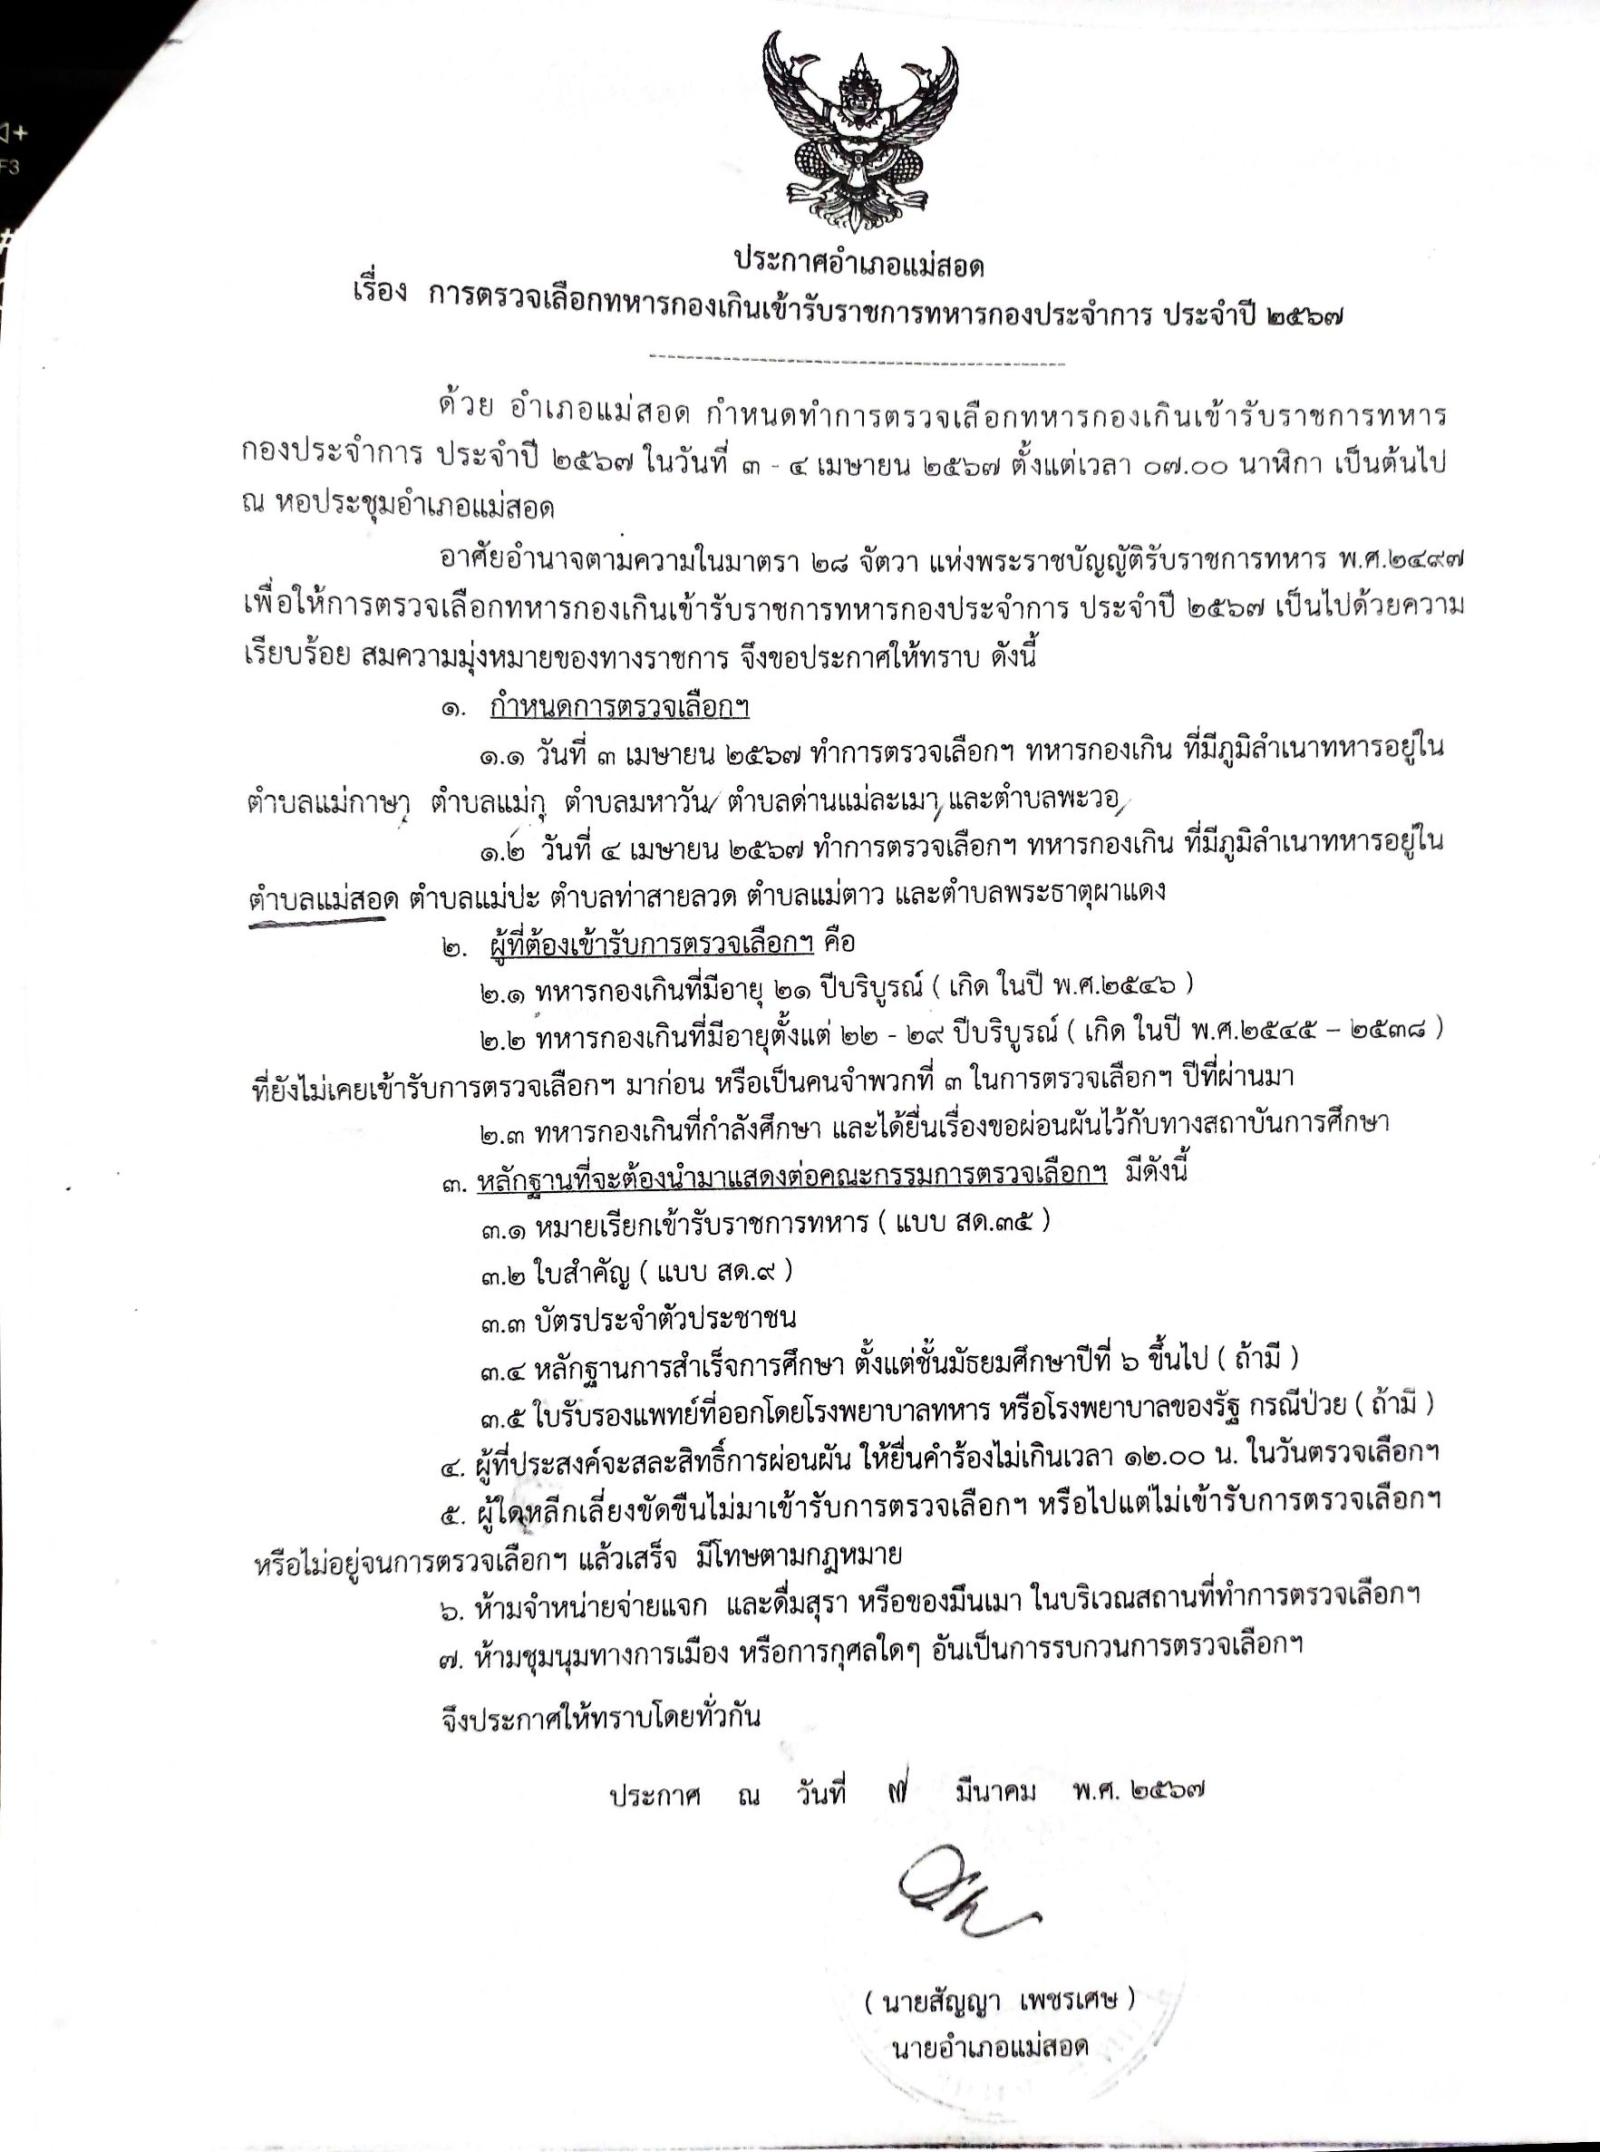 ประกาศอำเภอแม่สอด
เรื่อง การตรวจเลือกทหารกองเกินเข้ารับราชการทหารกองประจำการ ประจำปี ๒๕๖๗
ด้วย อำเภอแม่สอด กำหนดทำการตรวจเลือกทหารกองเกินเข้ารับราชการทหาร
กองประจำการ ประจำปี ๒๕๖๗ ในวันที่ ๓ - ๔ เมษายน ๒๕๖๗ ตั้งแต่เวลา ๐๗.๐๐ นาฬิกา เป็นต้นไป
ณ หอประชุมอำเภอแม่สอด
อาศัยอำนาจตามความในมาตรา ๒๘ จัตวา แห่งพระราชบัญญัติรับราชการทหาร พ.ศ.๒๔๙๗
เพื่อให้การตรวจเลือกทหารกองเกินเข้ารับราชการทหารกองประจำการ ประจำปี ๒๕๖๗ เป็นไปด้วยความ
เรียบร้อย สมความมุ่งหมายของทางราชการ จึงขอประกาศให้ทราบ ดังนี้
๑. กำหนดการตรวจเลือกฯ
๑.๑ วันที่ ๓ เมษายน ๒๕๖๗ ทำการตรวจเลือกฯ ทหารกองเกิน ที่มีภูมิลำเนาทหารอยู่ใน
ตำบลแม่กาษา ตำบลแม่กุ ตำบลมหาวัน ตำบลด่านแม่ละเมา และตำบลพะวอ
๑.๒ วันที่ ๔ เมษายน ๒๕๖๗ ทำการตรวจเลือกฯ ทหารกองเกิน ที่มีภูมิลำเนาทหารอยู่ใน
ตำบลแม่สอด ตำบลแม่ปะ ตำบลท่าสายลวด ตำบลแม่ตาว และตำบลพระธาตุผาแดง
๒. ผู้ที่ต้องเข้ารับการตรวจเลือกฯ คือ
๒.๑ ทหารกองเกินที่มีอายุ ๒๑ ปีบริบูรณ์ ( เกิด ในปี พ.ศ.๒๕๔๖ )
๒.๒ ทหารกองเกินที่มีอายุตั้งแต่ ๒๒ - ๒๙ ปีบริบูรณ์ ( เกิด ในปี พ.ศ.๒๕๔๕ – ๒๕๓๘ )
ที่ยังไม่เคยเข้ารับการตรวจเลือกฯ มาก่อน หรือเป็นคนจำพวกที่ ๓ ในการตรวจเลือกฯ ปีที่ผ่านมา
๒.๓ ทหารกองเกินที่กำลังศึกษา และได้ยื่นเรื่องขอผ่อนผันไว้กับทางสถาบันการศึกษา
๓. หลักฐานที่จะต้องนำมาแสดงต่อคณะกรรมการตรวจเลือกฯ มีดังนี้
๓.๑ หมายเรียกเข้ารับราชการทหาร ( แบบ สด.๓๕ )
๓.๒ ใบสำคัญ ( แบบ สด.๙ )
๓.๓ บัตรประจำตัวประชาชน
๓.๔ หลักฐานการสำเร็จการศึกษา ตั้งแต่ชั้นมัธยมศึกษาปีที่ ๖ ขึ้นไป ( ถ้ามี )
๓.๕ ใบรับรองแพทย์ที่ออกโดยโรงพยาบาลทหาร หรือโรงพยาบาลของรัฐ กรณีป่วย ( ถ้ามี )
๔. ผู้ที่ประสงค์จะสละสิทธิ์การผ่อนผัน ให้ยื่นคำร้องไม่เกินเวลา ๑๒.๐๐ น. ในวันตรวจเลือกฯ
๕. ผู้ใดหลีกเลี่ยงขัดขืนไม่มาเข้ารับการตรวจเลือกฯ หรือไปแต่ไม่เข้ารับการตรวจเลือกฯ
หรือไม่อยู่จนการตรวจเลือกฯ แล้วเสร็จ มีโทษตามกฎหมาย
๖. ห้ามจำหน่ายจ่ายแจก และดื่มสุรา หรือของมึนเมา ในบริเวณสถานที่ทำการตรวจเลือกฯ
๗. ห้ามชุมนุมทางการเมือง หรือการกุศลใดๆ อันเป็นการรบกวนการตรวจเลือกฯ
จึงประกาศให้ทราบโดยทั่วกัน
ประกาศ ณ วันที่ ๗ มีนาคม พ.ศ. ๒๕๖๗
( นายสัญญา เพชรเศษ )
นายอำเภอแม่สอด
F3